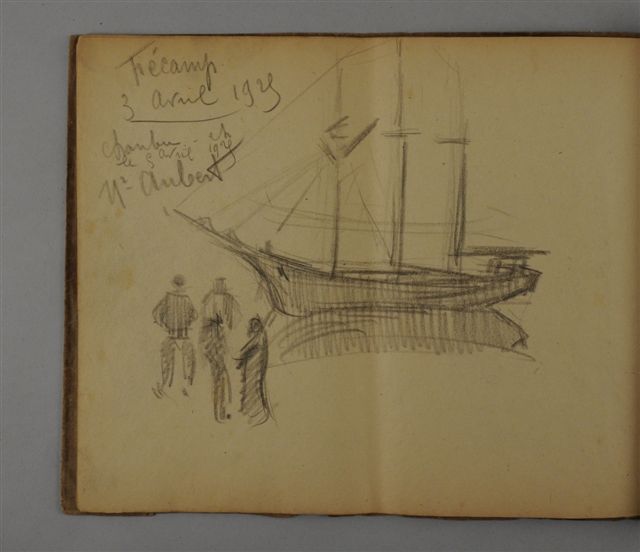 Fécamp
3 avril 1925
le 5 avril 1925
Mr Aubert